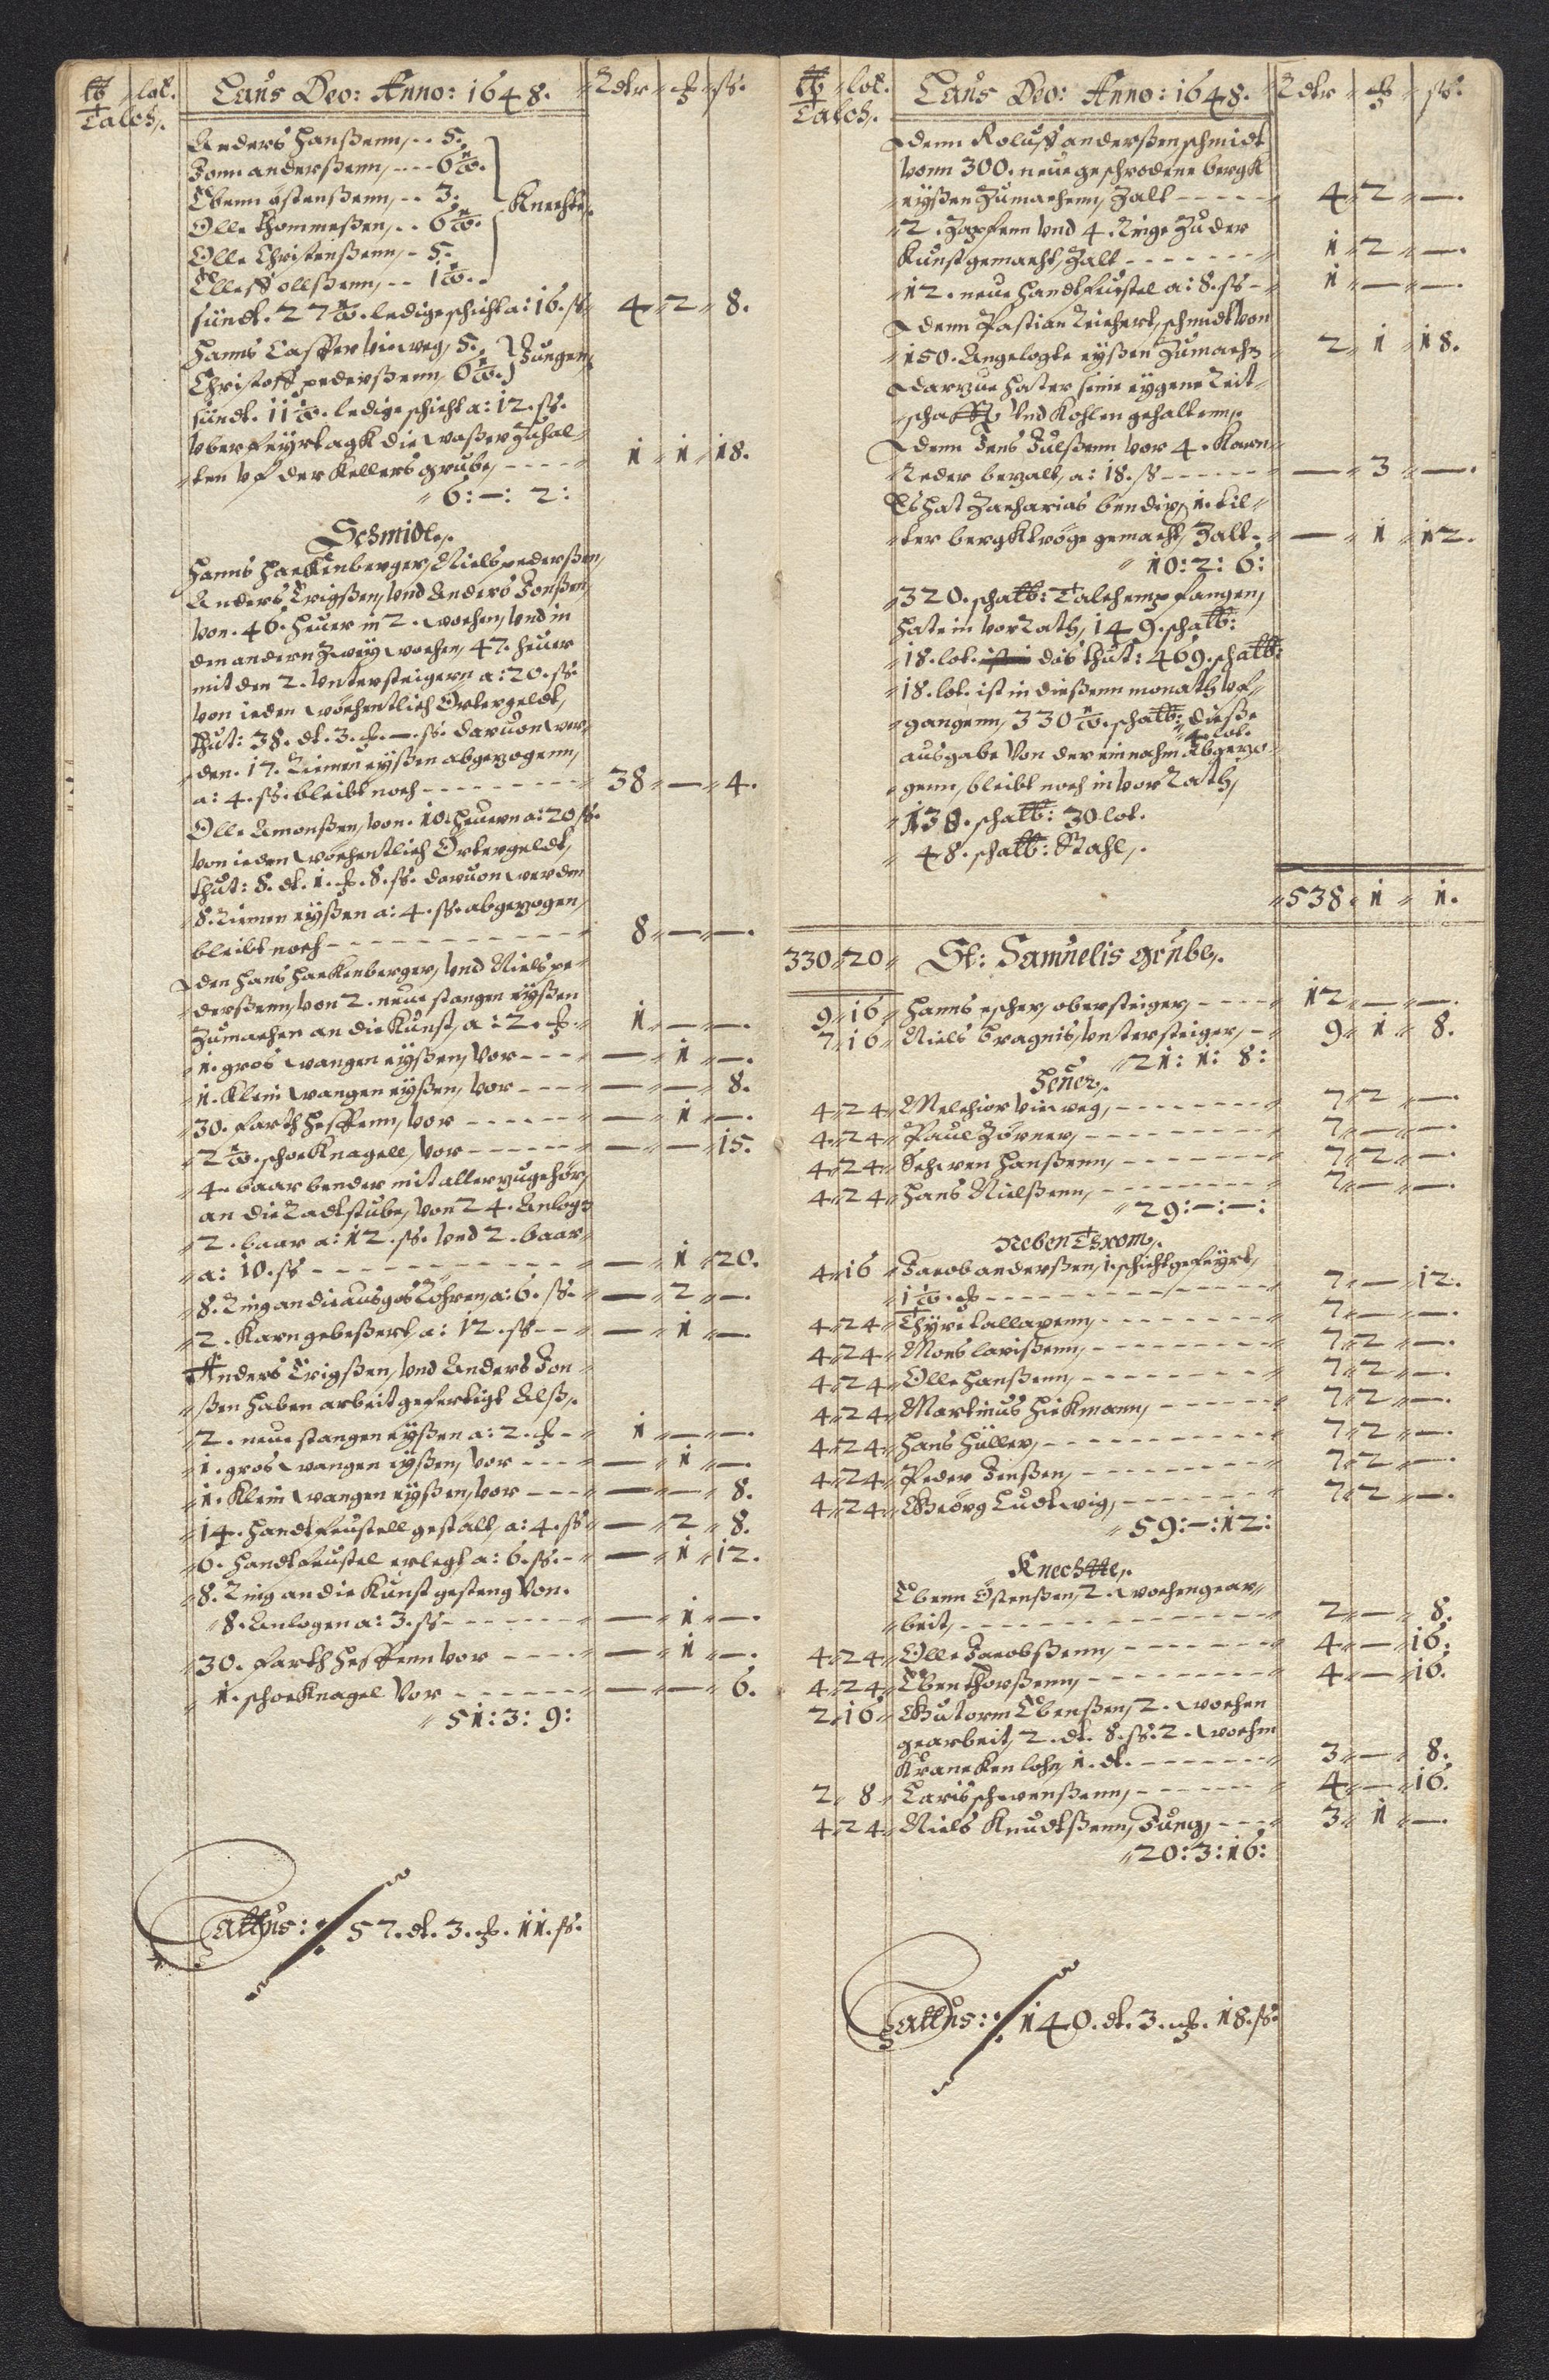 ℔ lot. Laus Deo: Anno: 1648. Rdtr ß.
Talch.
Anders Hanßenn, -- 5.
Jonn anderßenn, ---- 6 ½.
Ebenn östenßenn, -- 3.
Olle thommeßen, -- 6 ½. Knechte.
Olle Christenßenn, - 5.
Elleff ollßenn, -- 1 ½.
sündt. 27 ½. ledige schicht a: 16. ß 4 2 8.
Hanns Casper vinweg, 5. Jungen,
Christoff pederßenn, 6 ½.
sündt. 11 ½. ledige schicht a: 12. ß.
vber feyrtagk die waßer zu hal-
ten vf der Kellers grube, ---- 1 1 18.
6: —: 2:
Schmidt.
Hanns Hackenberger, Niels pederßen,
Anders Erigßen, vnd Anders Jonßen,
von. 46. heuer in 2. wochen, vnd in
den andern zwey wochen, 47. heuer
mit den 2. vntersteigern a: 20. ß.
von ieden wöchentlich Örtergeldt,
thut: 38. dt. 3. —. ß. dauon wer-
den. 17. Riemen eyßen abgezogenn,
a: 4. ß. bleibt noch -------- 38 — 4.
Olle Amonßen, von. 10. heuern a: 20 ß.
von ieden wöchentlich Örtergeldt,
thut: 8. dt. 1. 8. ß. dauon werden
8. Riemen eyßen a: 4. ß. abgezogen,
bleibt noch ------------ 8 — —.
den Hans Hackenberger, vnd Niels pe-
derßenn, von 2. neue stangen eyßen
zumachen an die Kunst, a: 2. 1 — —.
1. gros wangen eyßen, vor --- — 1 —.
1. Klein wangen eyßen, vor ---- — — 8.
30. farth heffenn, vor ------ — 1 —.
2 ½. schock nagell, vor ------ — — 15.
4. baar bender mit aller zugehör,
an die Radtstube, von 24. Anlog
2. baar a: 12. ß. vnd 2. baar
a: 10. ß ------------ — 1 20.
8. Ring an die ausgos Rohren, a: 6. ß. — 2 —.
2. Karn gebeßert, a: 12. ß --- — 1 —.
Anders Erigßen, vnd Anders Jon-
ßen haben arbeit gefertigt Alß,
2. neue stangen eyßen a: 2. - 1 — —.
1. gros wangen eyßen, vor --- — 1 —.
1. Klein wangen eyßen, vor ---- — — 8.
14. handt feustell gestalt, a: 4. ß — 2 8.
6. handt feustel erlegt a: 6. ß. - — 1 12.
8. Ring an die Kunst gesteng von.
8. Anlogen a: 3. ß ------- — 1 —.
30. farth heffenn vor ----- — 1 —.
1. schock nagel vor ------- — — 6.
51: 3: 9:
Lattus: 57. dt. 3. 11. ß.
℔ lot. Laus Deo: Anno: 1648. Rdtr ß.
Talch.
denn Roluff anderßen schmidt
vonn 300. neue geschrodene bergk
eyßen zumachenn, zalt ----- 4 2 —.
2. Zapfenn vnd 4. Ringe zu der
Kunst gemacht, zalt ------- 1 2 —.
12. neue handt feustel a: 8. ß - 1 — —.
denn Pastian Reichert, schmidt von
150. Angelogte eyßen zumachn 2 1 18.
darzue hat er seine eygene Leit-
schafft, vnd Kohlen gehaltenn.
denn Jens Julßenn vor 4. Karn-
Reder bezalt, a: 18. ß ------ — 3 —.
Es hat Zacharias bendix, 1. til-
ter bergktröge gemacht, zalt. — 1 12.
10: 2: 6:
320. scha℔: Talch empfangen,
hate in vorrath, 149. scha℔:
18. lot. das thut: 469. scha℔:
18. lot. ist in dießenn monath vf-
gangenn, 330 ½. scha℔: 4 lot. dieße
ausgabe von der einnahm abgezo-
genn, bleibt noch in vorrath,
138. scha℔: 30 lot.
48. scha℔: Stahl.
538. 1 1.
330 20 St: Samuelis grube.
9 16 Hanns escher, obersteiger, ---- 12 — —.
7 16 Niels Bragnis, vntersteiger, - 9 1 8.
21: 1: 8:
Heuer.
4 24 Melchior vinweg, -------- 7 2 —.
4 24 Paul Zörner, ---------- 7 — —.
4 24 Schwen Hanßenn, ------- 7 2 —.
4 24 Hans Nielßenn, --------- 7 — —.
29: —: —:
Neben Throm.
4 16 Jacob anderßen, 1. schicht gefeyrt,
1 ½. --------------- 7 — 12.
4 24 Thyre tallaxenn, -------- 7 — —.
4 24 Mons larißenn, --------- 7 2 —.
4 24 Olle Hanßenn, --------- 7 2 —.
4 24 Martinus Hickmann, ------ 7 2 —.
4 24 Hans Hüller, ---------- 7 2 —.
4 24 Peder Jenßen, --------- 7 2 —.
4 24 Georg Ludtwig, -------- 7 2 —.
59: —: 12:
Knechte.
Ebenn Östenßen, 2. wochen gear-
beit, --------------- 2 — 8.
4 24 Olle Jacobßenn, -------- 4 — 16.
4 24 Eben thorßenn, --------- 4 — 16.
2 16 Gutorm Ebenßen, 2. wochen
gearbeit, 2. dt. 8. ß. 2. wochen
Krancken lohn, 1. dt. ------- 3 — 8.
2 8 Laris schwenßenn, ------ 4 — 16.
4 24 Niels Knudtßenn, Jung, --- 3 1 —.
20: 3: 16:
Lattus: 140. dt. 3. 18. ß.